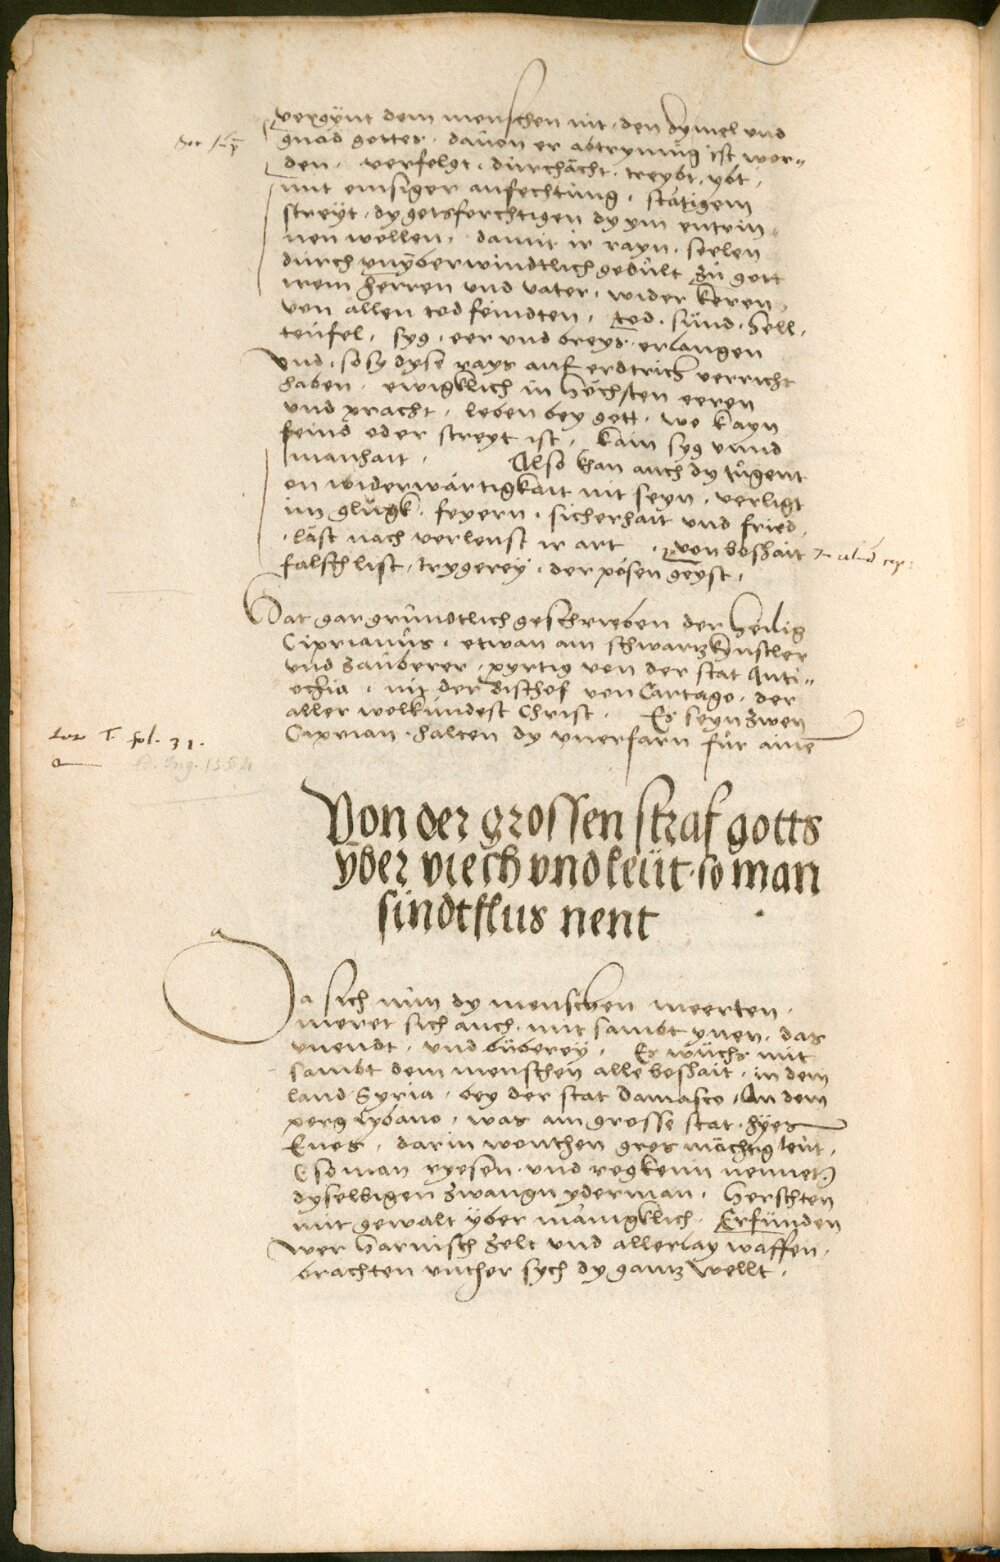 vergünt dem menschen nit den hymel und
gnad gottes. dauon er abtrynnig ist wor„
den. verfolgt. durchächt. treybt. ybt.
mit emsiger anfechtung. stätigem
streyt. dy gotsforchtigen dy ym entrin
nen wellen. damit ir rayn. seelen
durch vnyberwindtlich gedult zu gott
irem herren und vater. wider keren.
von allen tod feindten. tod. sünd. hell.
teufel. syg. eer und breys. erlangen
Vnd. so sy dyse rays auf erdtrich verricht
haben. ewigklich in höchsten eeren
und pracht. leben bey gott. wo kayn
feind oder streyt ist. kain syg vnnd
manhait. Also khan auch dy tugent
on widerwärtigkait nit seyn. verligt
im glügk. feyern. sicherhait und fried.
läst nach verleust ir art. von boshait
falsch list. trygerey. der pösen geyst.
Hat gar gründtlich geschrieben der heilig
Ciprianus. etwan ain schwartzkynstler
und zauberer. pyrtig von der stat Anti„
ochia. nit der bischof von Cartago. der
aller wolkündest Christ. Es seyn zwen
Ciprian. halten dy vnerfarn für ainē
fol. 31.
Von der grossen straf gotts
yber viech vnd leüt. so man
sindtflus nent
Da sich nun dy menschen meerten.
meret sich auch. mit sambt ynen. das
vnendt. vnd büberey. Es wuchs mit
sambt dem menschen alle boshait. in dem
land Syria. bey der stat Damasco. An dem
perg Lybano. was ain grosse stat. hyes
Enos. darin wonthen gros mächtig leut.
(so man rysen. und regkenn nennet)
dyselbigen zwangn yderman. herschten
mit gewalt yber mänigklich. Erfünden
wer harnisch zelt und allerlay waffen.
brachten vnther sych dy gantz wellt.